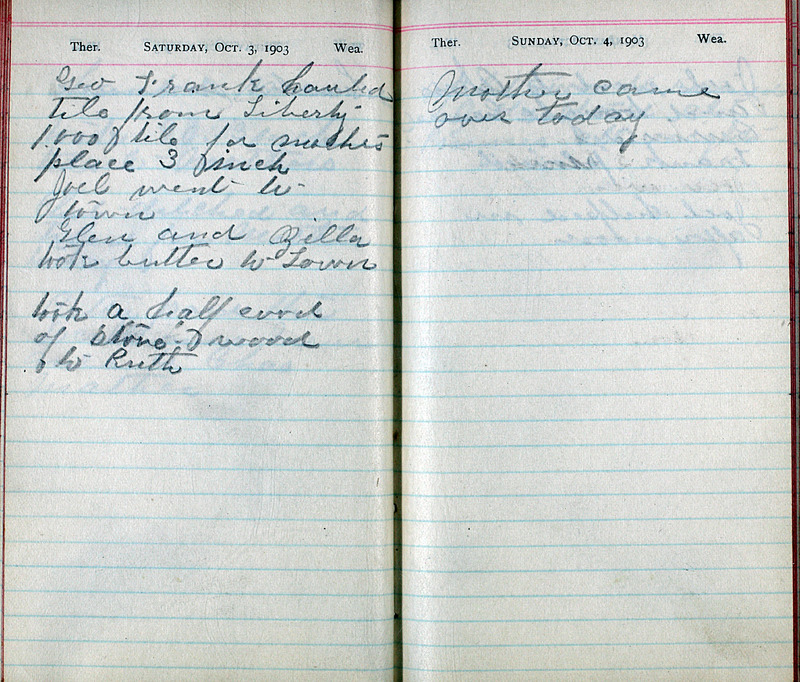 Ther. SATURDAY, OCT. 3, 1903 Wea.
Geo Franck hauled
tile from Liberty
1.000 tile for mothers
place 3 inch
Joel went to
town
Glen and Zilla
took butter to Town
took a half cord
of stove wood
to Ruth
Ther. SUNDAY, OCT. 4, 1903 Wea.
Mother came
over today